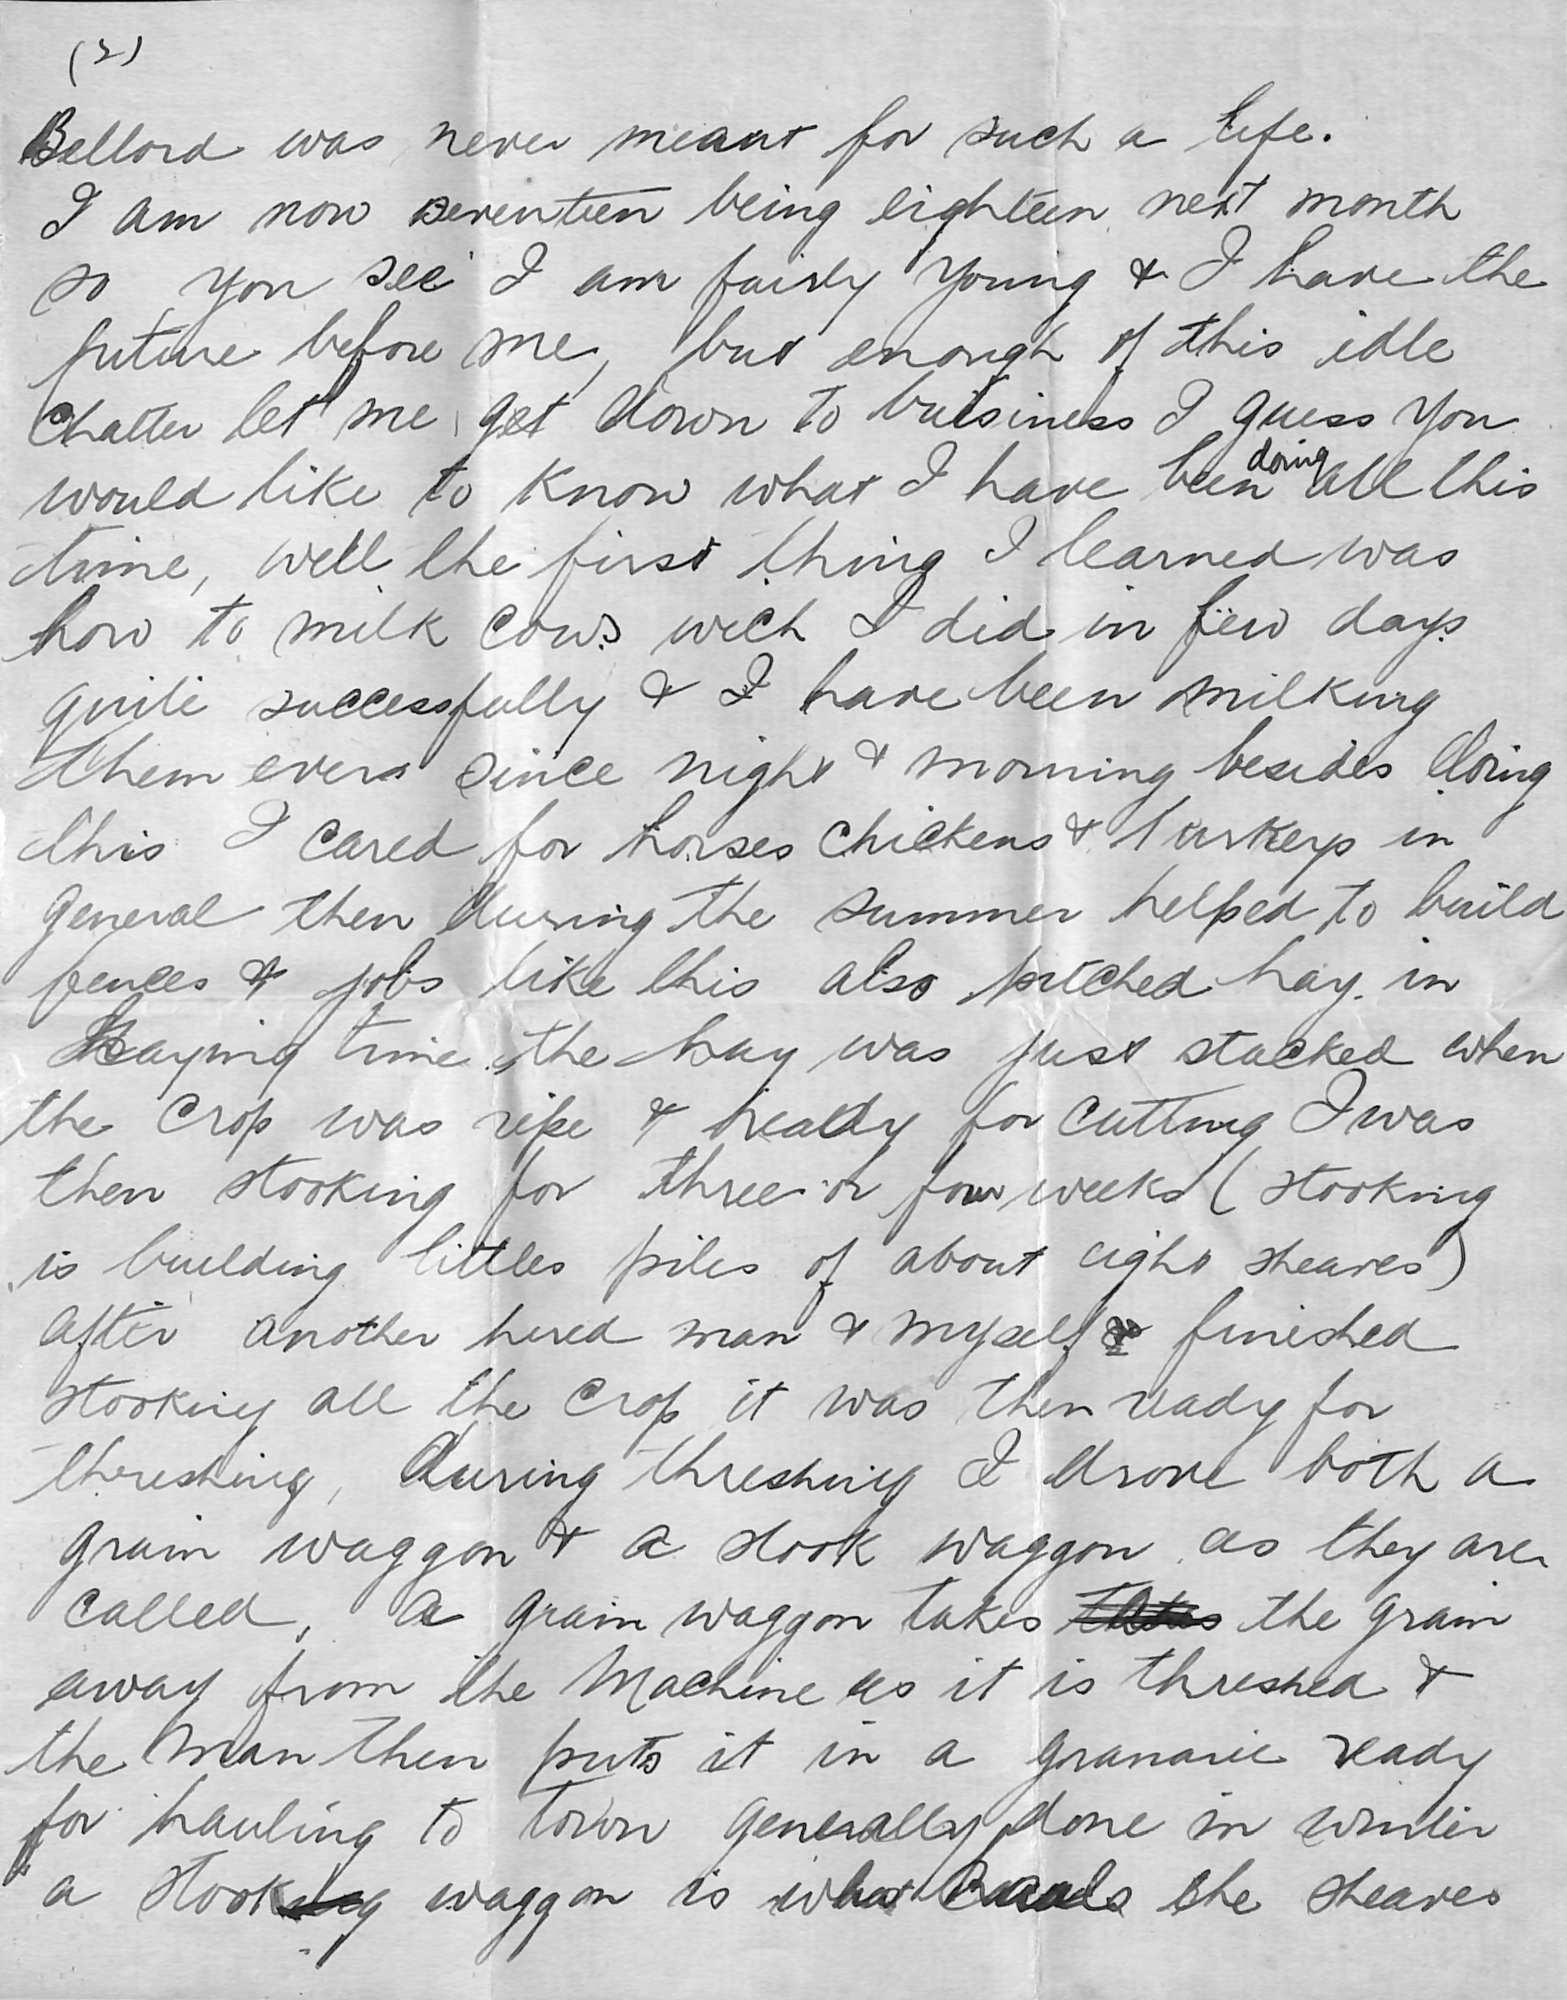 (2)
Bellord was never meant for such a life.
I am now seventeen being eighteen next month
so you see I am fairly young & I have the
future before me, but enough of this idle
chatter let me get down to buisiness I guess you
would like to know what I have been doing all this
time, well the first thing I learned was
how to milk cows wich I did in few days
quite successfully & I have been milking
them ever since night & morning besides doing
this I cared for horses chickens & turkeys in
general then during the summer helped to build
fences & jobs like this also pitched hay in
haying time, the hay was just stacked when
the crop was ripe & ready for cutting I was
then stooking for three or four weeks (stooking
is building littles piles of about eight sheaves)
after another hired man & myself finished
stooking all the crop it was then ready for
threshing, during threshing I drove both a
grain waggon & a stook waggon as they are
called, a grain waggon takes the grain
away from the machine as it is threshed &
the man then puts it in a granarie ready
for hauling to town generally done in winter
a stook waggon is what hauls the sheaves